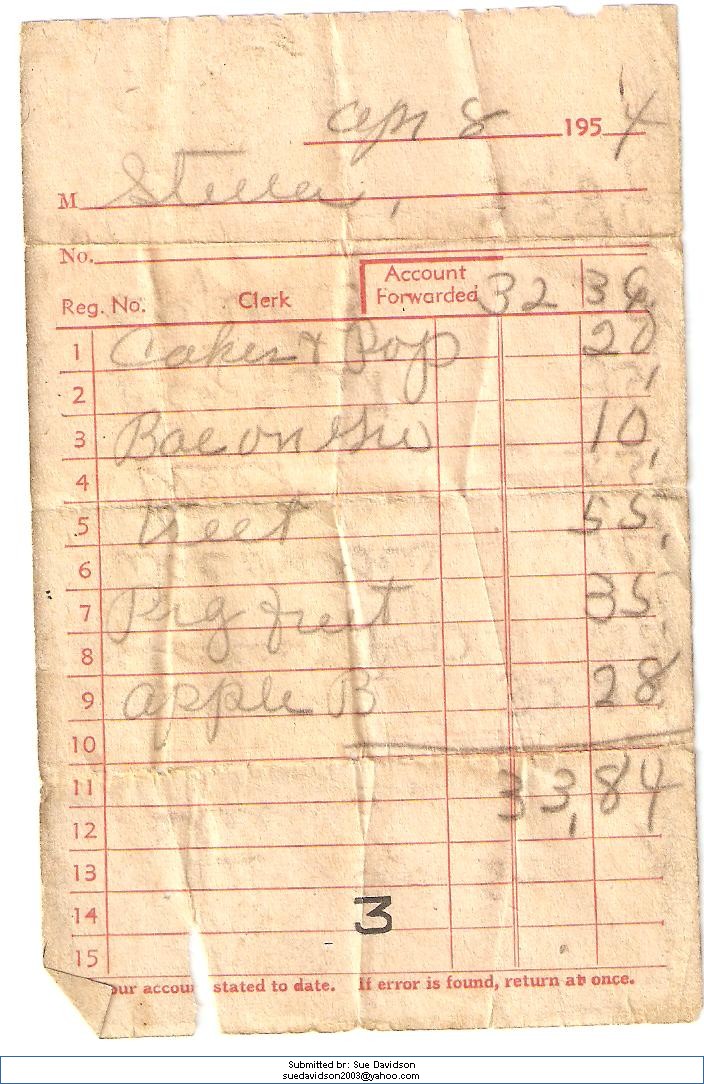 Apr 8 195 4
M Stella,
No.
Reg. No. Clerk Account Forwarded 32 36
1 Cakes & Pop 20
2
3 Bacon 10
4
5 Meet 55
6
7 Pig feet 35
8
9 apple B 28
10
11 33,84
12
13
14 3
15
our accou stated to date. If error is found, return at once.
Submitted br: Sue Davidson
suedavidson2003@yahoo.com